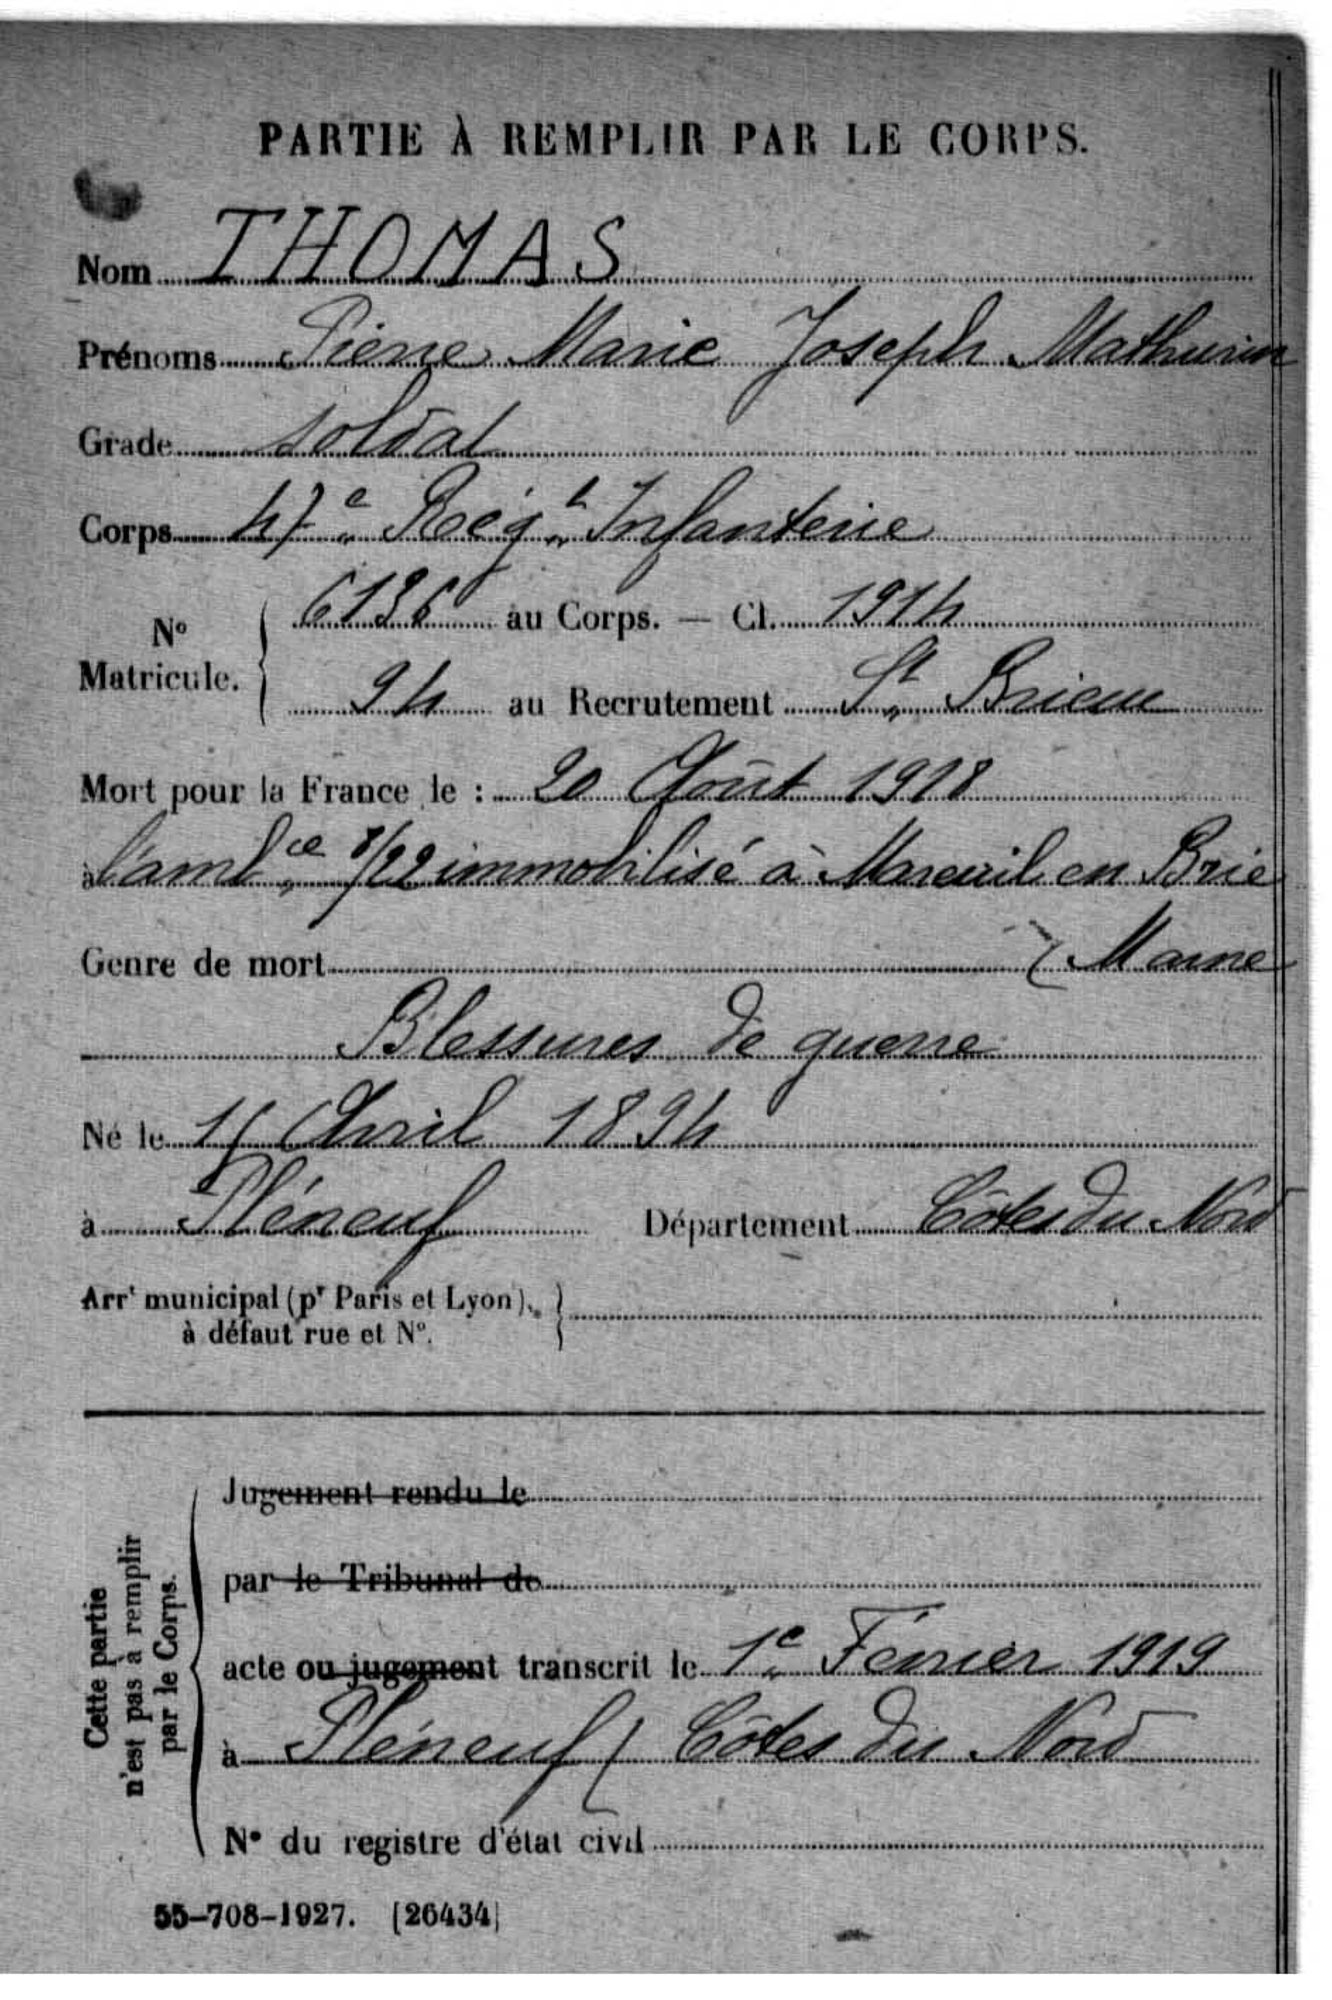 PARTIE À REMPLIR PAR LE CORPS.
Nom THOMAS
Prénoms Pierre Marie Joseph Mathurin
Grade soldat
Corps 47e Régt Infanterie
No Matricule. { 6136 au Corps. — Cl. 1914
94 au Recrutement St Brieuc
Mort pour la France le : 20 Août 1918
à l'ambce 8/22 immobilisé à Mareuil en Brie
Genre de mort ( Marne
Blessures de guerre
Né le Avril 1894
à Pléneuf Département Côtes du Nord
Arrt municipal (pr Paris et Lyon), }
à défaut rue et No.
Cette partie
n'est pas à remplir
par le Corps.
Jugement rendu le
par le Tribunal de
acte ou jugement transcrit le 1e Février 1919
à Pléneuf ( Côtes du Nord
No du registre d'état civil
55-708-1927. [26434]